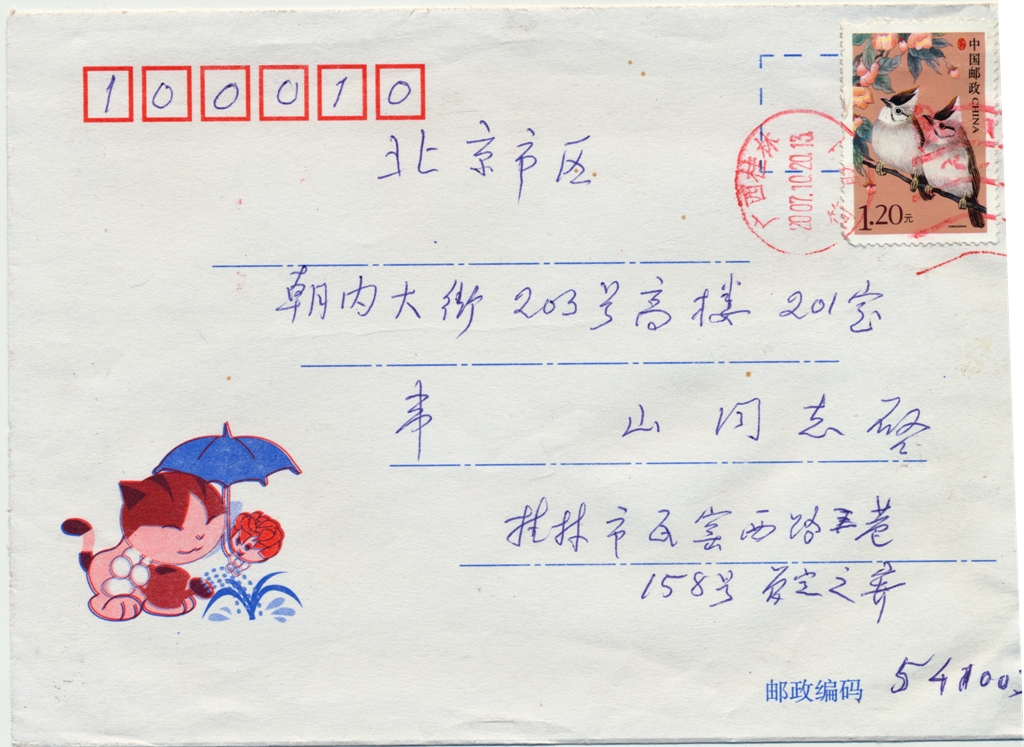 100010
中国邮政 CHINA
1.20元
广西桂林
2007.10.20.13
北京市区
朝内大街203号高楼201室
韦 山同志启
桂林市瓦窑西路五巷
158号
邮政编码 541003